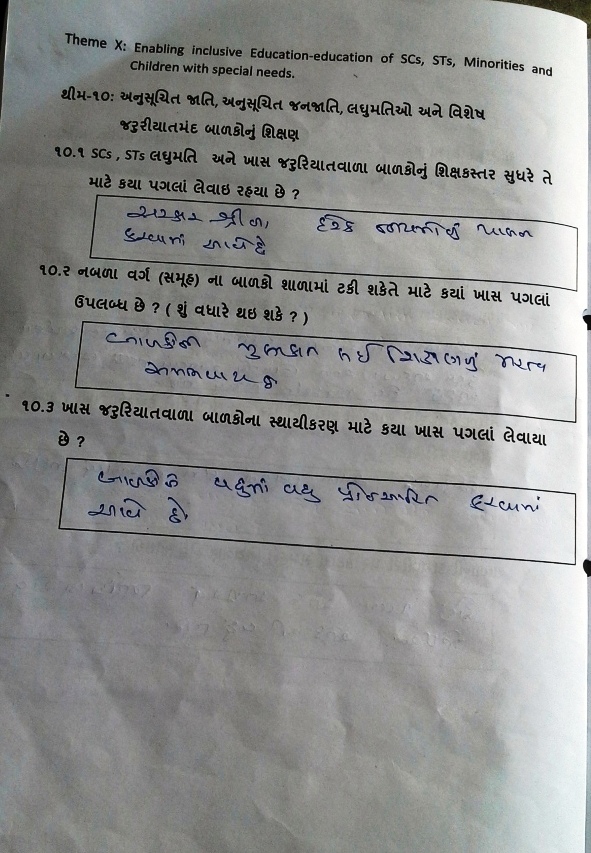 Theme X: Enabling inclusive Education-education of SCs, STs, Minorities and
Children with special needs.
થીમ-૧૦: અનુસૂચિત જાતિ, અનુસૂચિત જનજાતિ, લઘુમતિઓ અને વિશેષ
જરુરીયાતમંદ બાળકોનું શિક્ષણ
૧૦.૧ SCs , STs લઘુમતિ અને ખાસ જરુરિયાતવાળા બાળકોનું શિક્ષકસ્તર સુધરે તે
માટે કયા પગલાં લેવાઇ રહયા છે ?
સરકાર શ્રીના, દરેક નું પાલન
કરવામાં આવે છે
૧૦.૨ નબળા વર્ગ (સમૂહ) ના બાળકો શાળામાં ટકી શકેતે માટે કયાં ખાસ પગલાં
ઉપલબ્ધ છે ? ( શું વધારે થઇ શકે ? )
બાળકોની મુલાકાત લઈ શિક્ષણનું મહત્વ
સમજાવાય છે
૧૦.3 ખાસ જરુરિયાતવાળા બાળકોના સ્થાયીકરણ માટે કયા ખાસ પગલાં લેવાયા
છે ?
બાળકોને વધુમાં વધુ પ્રોત્સાહિત કરવામાં
આવે છે.